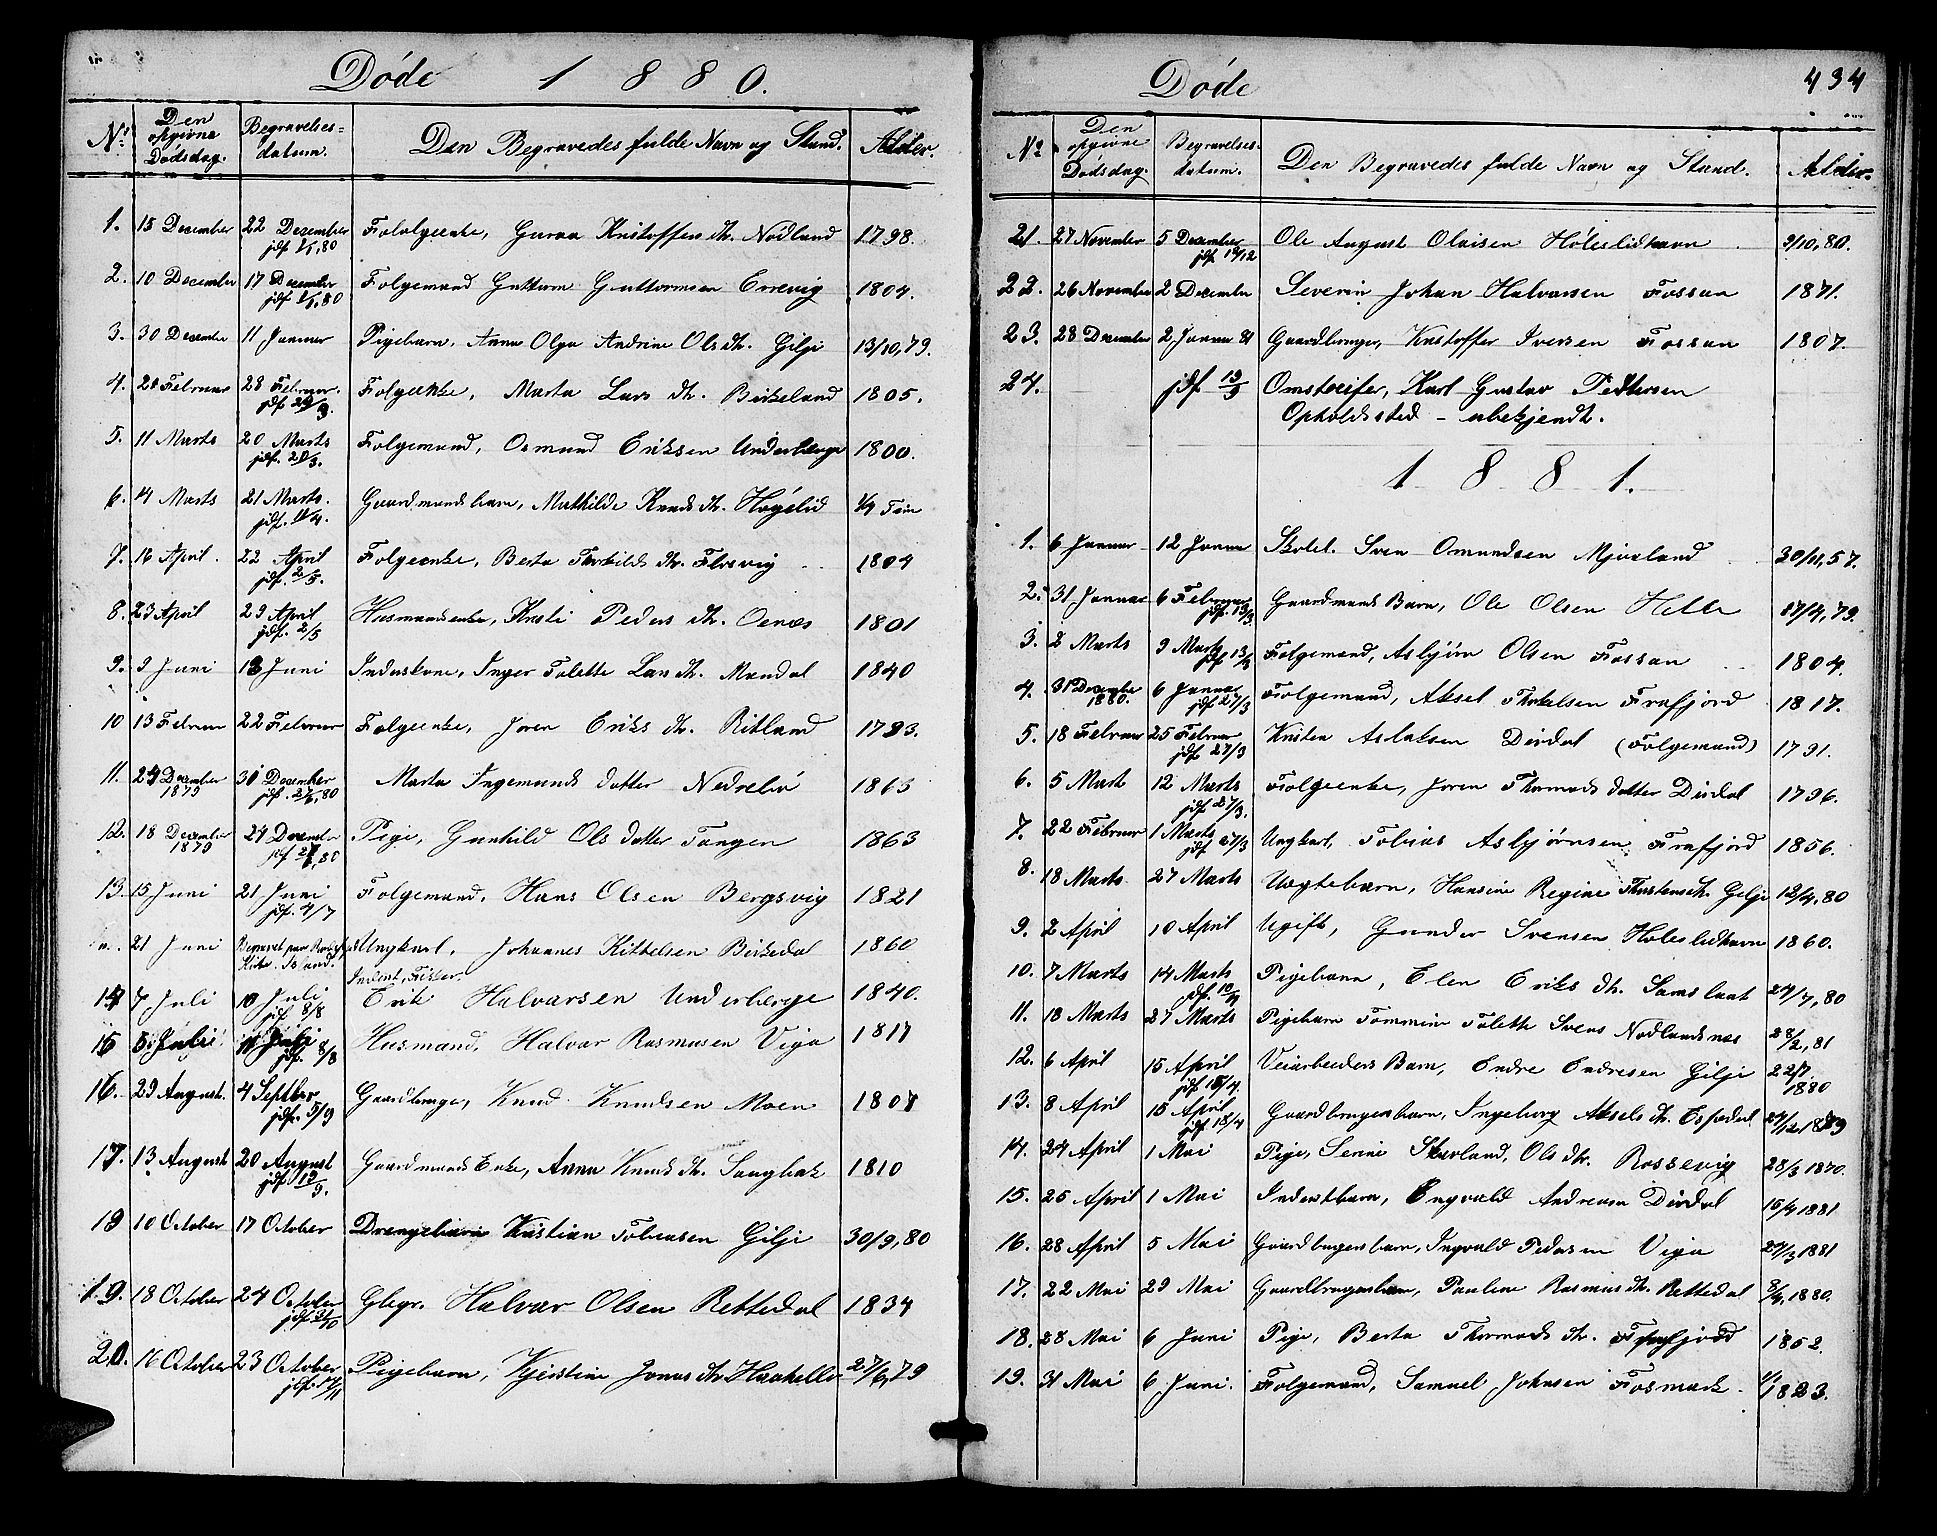 Døde 1880.
No. Den opgivne Dødsdag. Begravelses=datum. Den Begravedes fulde Navn og Stand. Alder.
1. 15 December 22 Dezember jdf 1/1,80 Folgeenke, Guraa Kristoffers dtr. Nødland 1798.
2. 10 December 17 Dezember jdf 1/1,80 Folgemand Guttorm Guttormsen Errevig 1804.
3. 30 December 11 Januar Pigebarn, Anna Olga Andrine Ols dtr. Gilje 13/10,79.
4. 20 Februar 28 Februar. jdf 29/3. Folgeenke, Marta Lars dtr. Birkeland 1805.
5. 11 Marts 20 Marts jdf. 21/3. Folgemand, Osmund Eriksen Underberge 1800.
6. 14 Marts 21 Marts. jdf. 11/4. Gaardmandsbarn, Mathilde Knuds dtr. Høgelid
7. 16 April. 22 April jdf. 2/5. Folgeenke, Berta Thorkilds dtr. Flørsvig 1804
8. 23 April 29 April jdf. 2/5 Husmandsenke, Kristi Peders dtr. Oenæs 1801
9. 9 Juni 18 Juni Inderstkone, Inger Tolette Lars dtr. Mandal 1840
10 13 Februar 22 Februar Folgeenke, Joren Eriks dtr. Ritland 1793.
11. 24 December 1879 30 December jdf. 27/6,80 Marta Ingemunds datter Nedrebø 1865
12. 18 December 1879 24 December jdf 80 Pige, Gunhild Ols datter Tangen 1863
13. 15 Juni 21 Juni jdf. 4/7 Folgemand, Hans Olsen Bergsvig 1821
21 Juni Begravet paa Kirke. Island. Ungkarl, Johannes Kittelsen Birkedal 1860
14 7 Juli 10 Juli jdf 8/8 Inderst, Fisker. Erik Halvarsen Underberge 1840.
15 5 Juli 11 Juli jdf. 8/8 Husmand, Halvar Rasmusen Viga 1817
16. 29 August. 4 Septber jdf. 5/9 Gaardbruger, Knud Knudsen Moen 1807
17. 13 August 20 August jdf 12/9. Gaardmands Enke, Anna Knuds dtr. Saugbak 1810
19 10 October 17 October Drengebarn Kristian Tobiasen Gilje 30/9,80
19. 18 October 24 October jdf 31/10 Gbgr. Halvar Olsen Rettedal 1834
20. 16 October 23 October jdf. Pigebarn, Kjerstine Jonas dtr. Haahelle 27/6,79
Døde 434
No Den opgivne Dødsdag. Begravelses-datum. Den Begravedes fulde Navn og Stand. Alder.
21. 27 November 5 Dezember jdf. 19/12 Ole August Olaisen Høleslidhavn 9/10,80.
22. 26 November 2 Dezember Severin Johan Halvarsen Fossan 1871.
23. 28 Dezember 2 Januar 81 Gaardbruger, Kristoffer Iversen Fossan 1807.
24. jdf 13/3 Omstreifer, Karl Gustav Pettersen
Opholdssted - ubekjendt.
1881.
1. 6 Januar 12 Januar Skolel. Sven Omundsen Mjøsland 30/11,57.
2. 31 Januar 6 Februar jdf. 13/3 Gaardmands Barn, Ole Olsen Helle 17/4,79.
3. 2 Marts 9 Marts jdf 13/3 Folgemand, Asbjørn Olsen Fossan 1804.
4. 31 December 1880. 6 Januar jdf 27/3 Folgemand, Aksel Thorkelsen Frafjord 1817.
5. 18 Februar 25 Februar jdf 27/3 Kristen Aslaksen Dirdal (Folgemand) 1791.
6. 5 Mart 12 Marts jdf 27/3. Folgeenke, Joren Thormods datter Dirdal 1796.
7. 22 Februar 1 Marts jdf 27/3 Ungkarl, Tobias Asbjørnsen Frafjord 1856.
8. 18 Marts. 27 Marts Uægtebarn, Hansine Regine Thorstensdtr. Gilje 12/4,80
9. 2 April 10 April Ugift, Gunder Svensen Høleslidhavn 1860.
10. 7 Marts 14 Marts jdf. 10/4 Pigebarn, Elen Eriks dtr. Samslaat 24/7,80
11. 18 Marts 27 Marts Pigebarn Tommine Tolette Svens Nødlandsnæs 28/2,81
12. 6 April 15 April jdf 18/4. Veiarbeiders Barn, Endre Endresen Gilje 22/7 1880
13. 8 April 15 April jdf 18/4 Gaardbrugersbarn, Ingeborg Aksels dtr. Espedal
14. 24 April 1 Mai Pige, Serine Skavland, Ols dtr. Rossevig 28/3 1870.
15. 25 April 1 Mai Inderstbarn, Engvald Andreasen Dirdal 15/4 1881.
16. 28 April 5 Mai Gaardbrugersbarn, Ingvald Pedersen Viga 27/3 1881
17. 22 Mai 29 Mai Gaardbrugersbarn, Pauline Rasmus dtr. Rettedal 8/4,1880.
18. 28 Mai 6 Juni Pige, Berta Thormods dtr. Frafjord 1852.
19. 31 Mai 6 Juni. Folgemand, Samuel Johnsen Fosmark 1823.